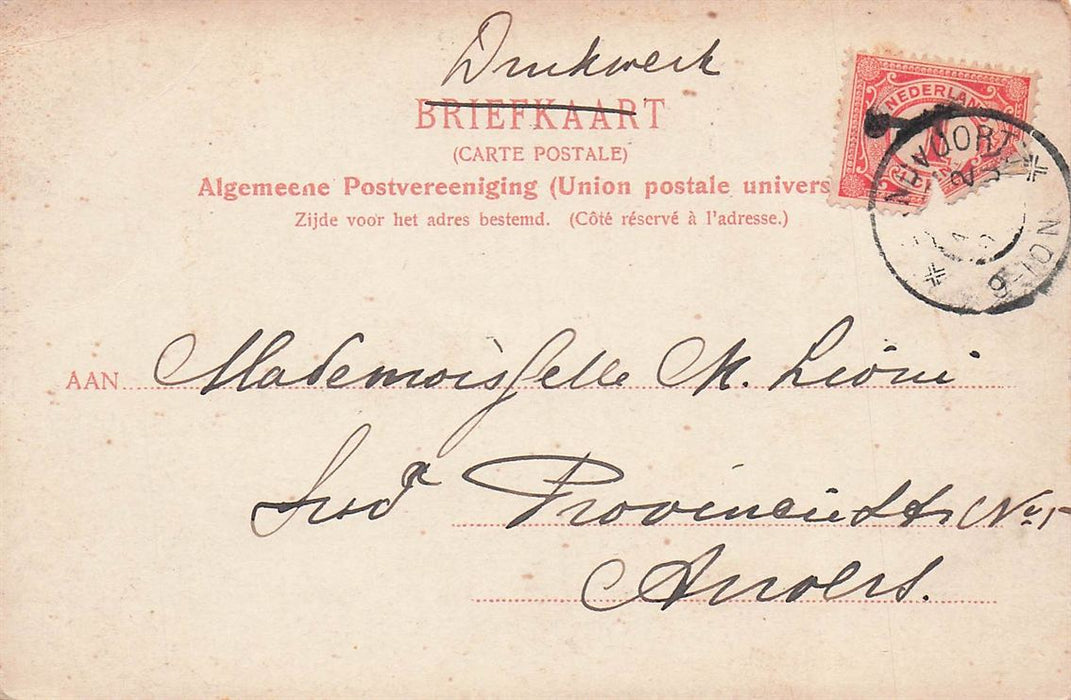 Drukwerk
BRIEFKAART
(CARTE POSTALE)
Algemeene Postvereeniging (Union postale univers
Zijde voor het adres bestemd. (Côté réservé à l'adresse.)
NEDERLAND
9-10N
AAN Mademoisselle M. Lioni
Provinciestr No
Anvers.